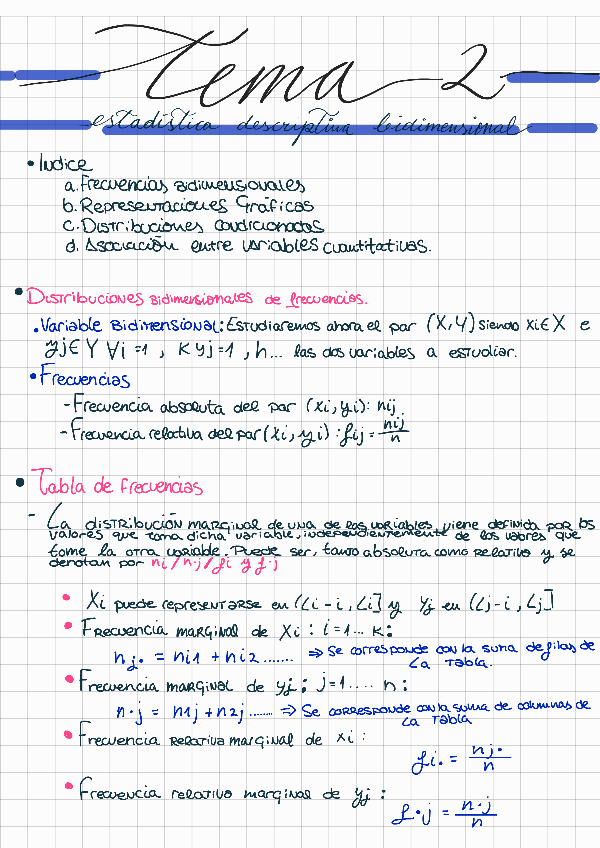 Tema 2
estadística descriptiva bidimensional
• Indice
a. Frecuencias Bidimensionales
b. Representaciones Gráficas
c. Distribuciones condicionadas
d. Asociación entre variables cuantitativas.
• Distribuciones Bidimensionales de frecuencias.
• Variable Bidimensional: Estudiaremos ahora el par (X,Y) siendo xi ∈ X e
yj ∈ Y ∀i = 1 , K y j = 1 , h... las dos variables a estudiar.
• Frecuencias
- Frecuencia absoluta del par (xi, yi): nij
- Frecuencia relativa del par (xi, yi) : fij = nij/n
• Tabla de frecuencias
- La distribución marginal de una de las variables viene definida por los
valores que toma dicha variable, independientemente de los valores que
tome la otra variable. Puede ser, tanto absoluta como relativa y se
denotan por ni/n·j/fi y f·j
• Xi puede representarse en (Li-i, Li] y Yj en (Lj-i, Lj]
• Frecuencia marginal de Xi : i = 1... K:
nj. = ni1 + ni2 ....... ⇒ Se corresponde con la suma de filas de
La Tabla.
• Frecuencia marginal de yj ; j = 1 .... n :
n·j = n1j + n2j ........ ⇒ Se corresponde con la suma de columnas de
La Tabla
• Frecuencia Relativa marginal de xi :
fi. = nj./n
• Frecuencia relativa marginal de yj :
f·j = n·j/n